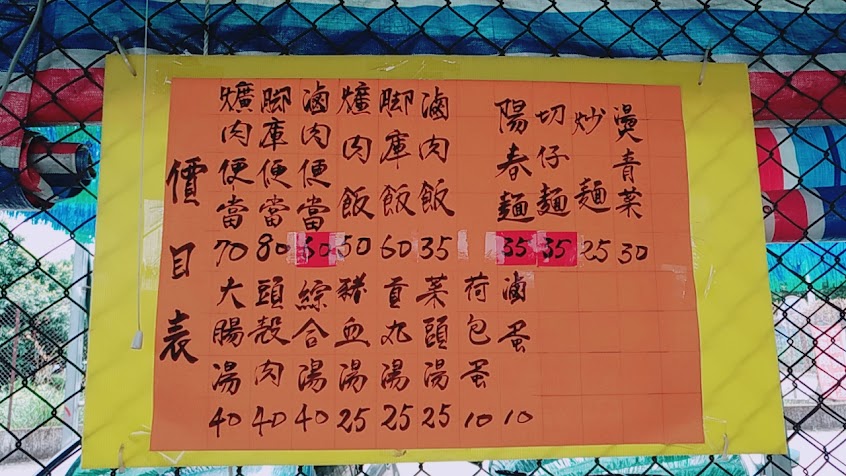 價目表
爌肉便當 70
脚庫便當 80
滷肉便當
爌肉飯 50
脚庫飯 60
滷肉飯 35
陽春麵 35
切仔麵 35
炒麵 25
燙青菜 30
大腸湯 40
頭殼肉 40
綜合湯 40
豬血湯 25
貢丸湯 25
菜頭湯 25
荷包蛋 10
滷蛋 10